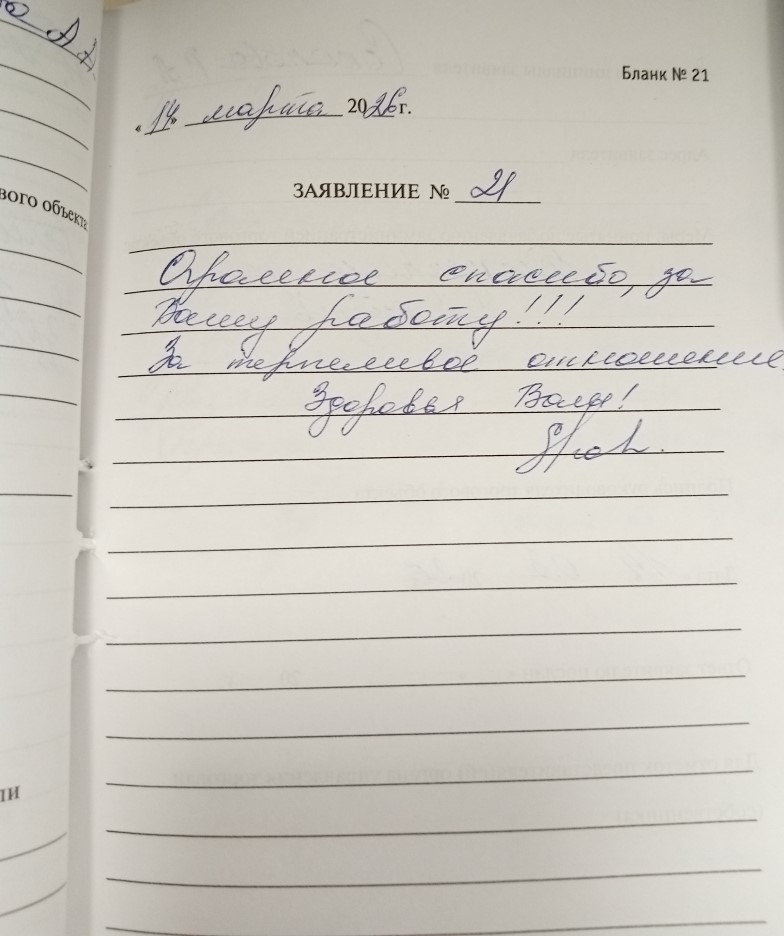 А А
Бланк № 21
„14" марта 2026 г.
вого объекта
ЗАЯВЛЕНИЕ № 21
Огромное спасибо, за
Вашу работу!!!
За терпеливое отношение,
Здоровья Вам!
ли